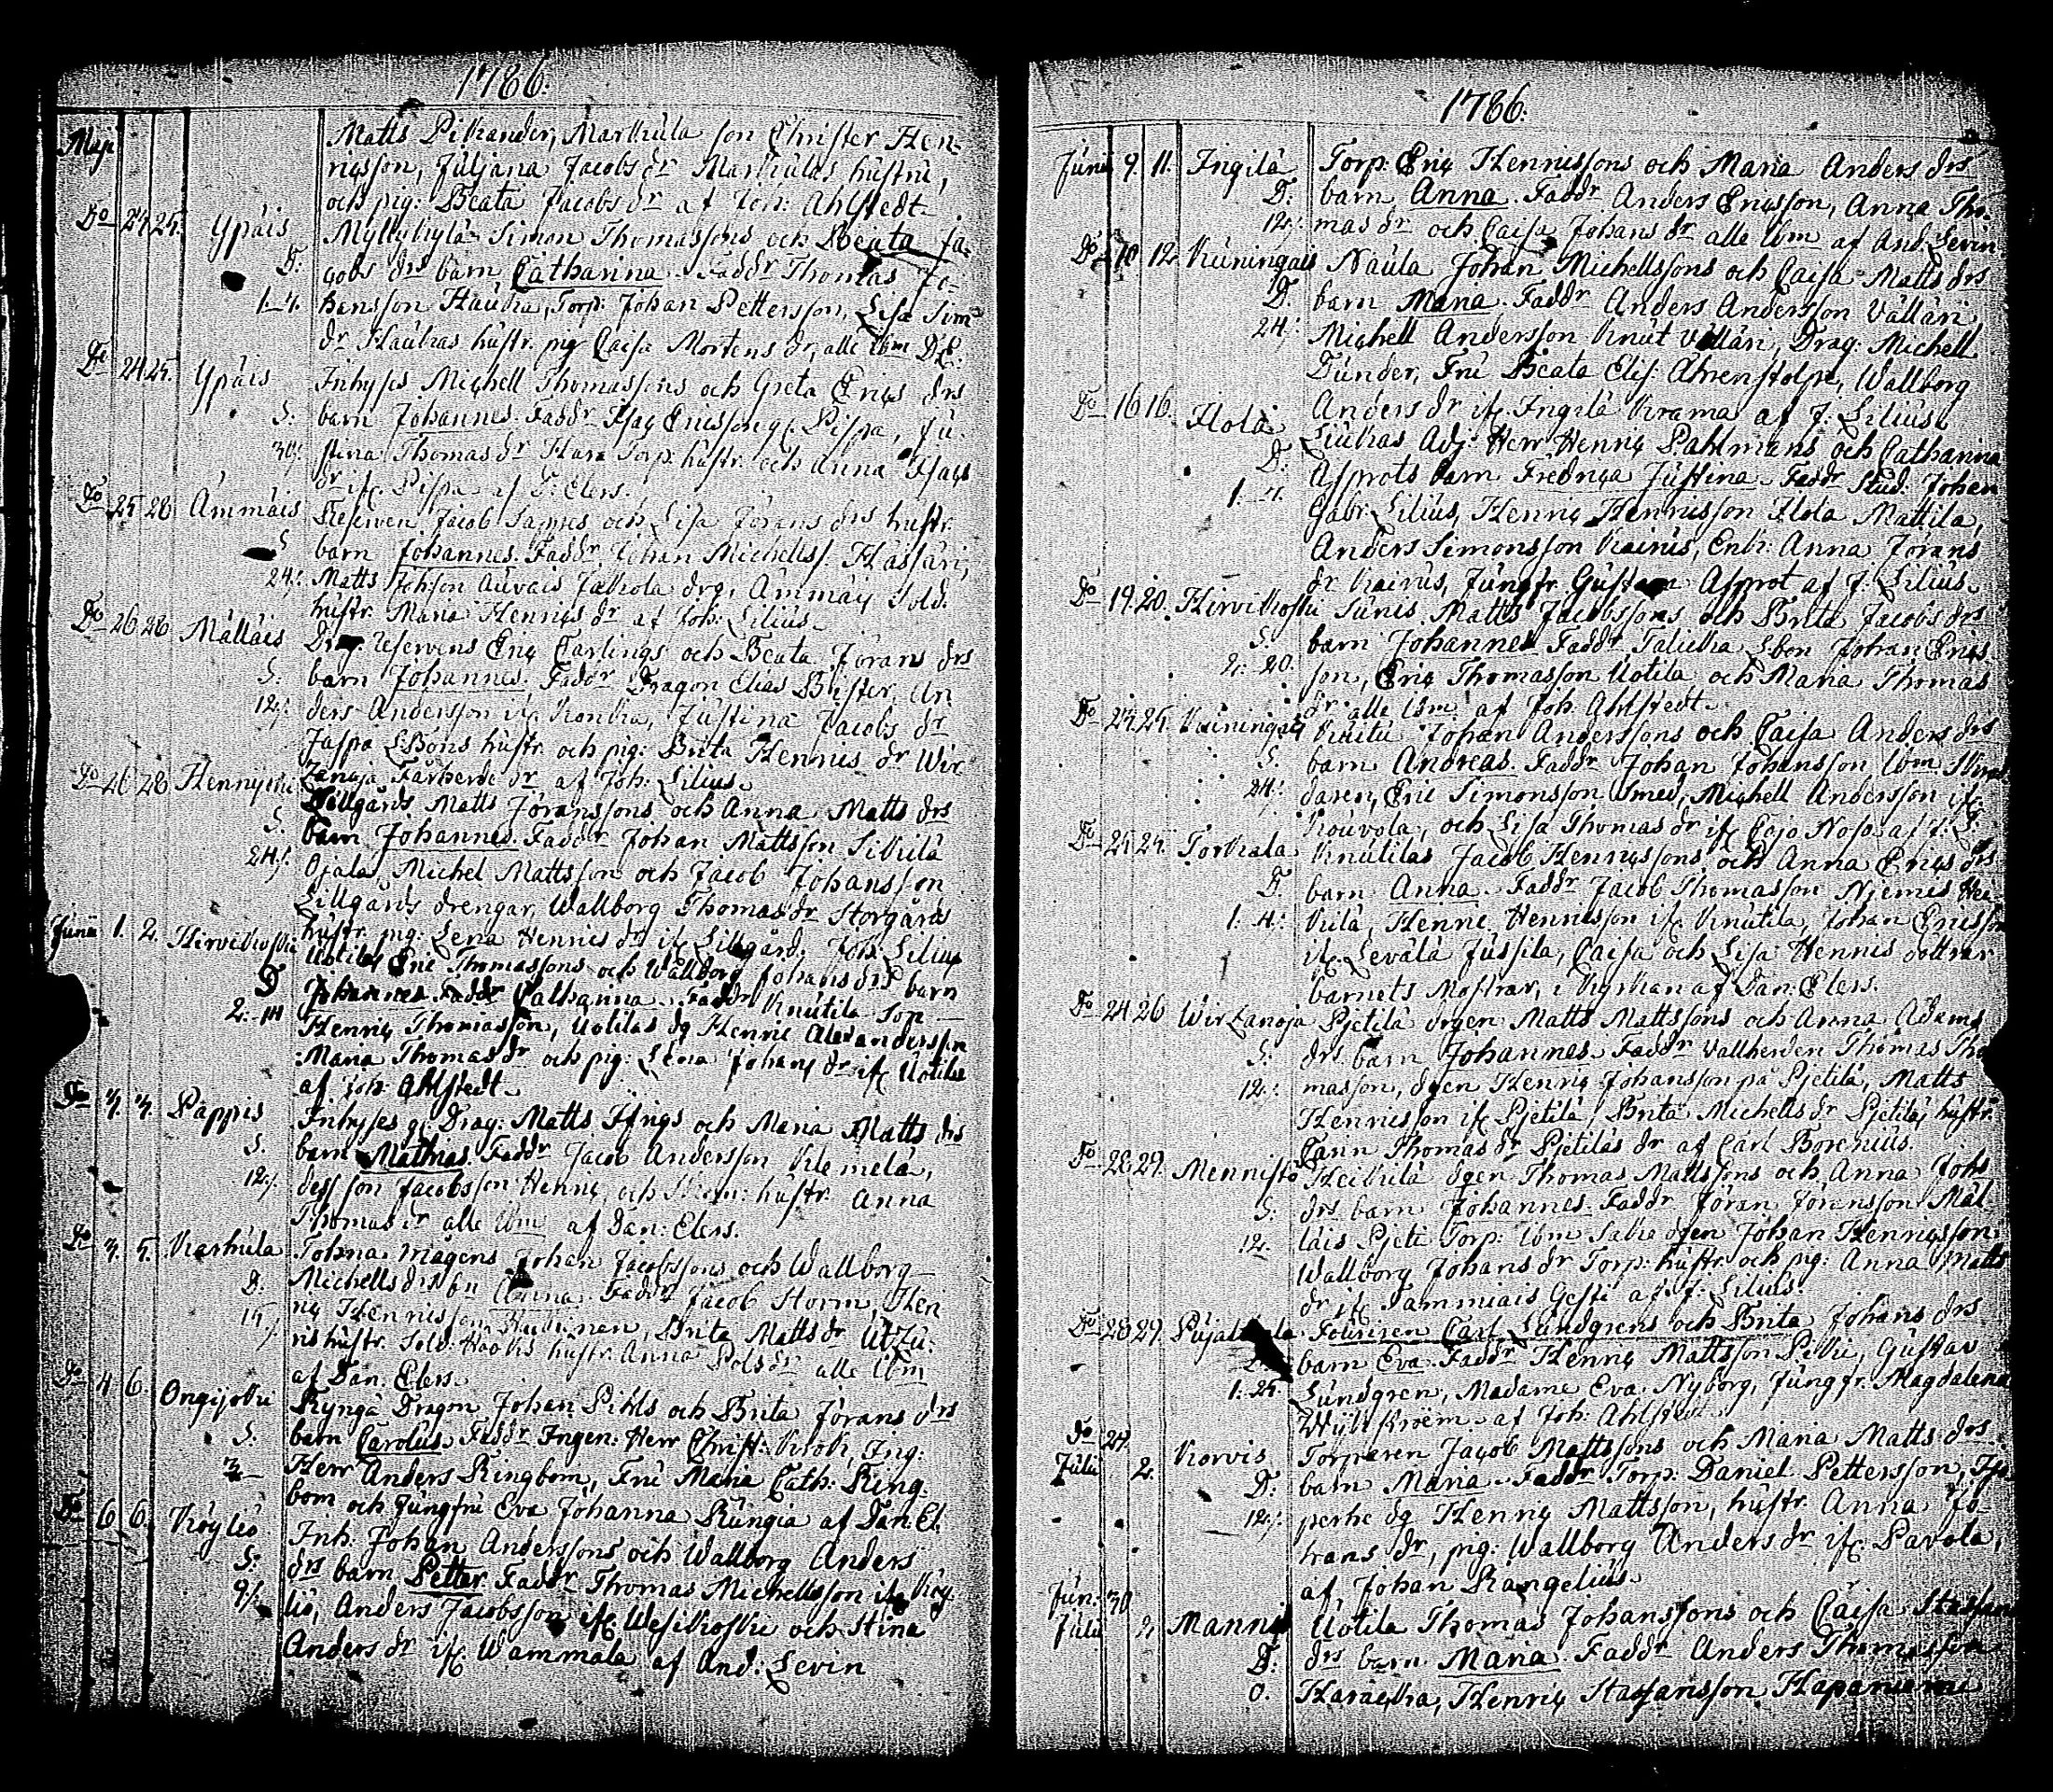 1786.
Maji Matts Pihrander, Markula son Christer Hen-
ricsson, Juljana Jacobs dr Markulas hustru,
och pig: Beata Jacobs dr af Joh: Ahlstedt
Do 24 25. Ypäis Myllykylä Simon Thomassons och Beata Ja-
D: cobs drs barn Catharina. Faddr Thomas Jo-
1. 4. hansson Hauka, Torp: Johan Pettersson, Lisa Sim
dr Haukas hustr. pig Caisa Mortens dr, alle ibm D.E.
Do 24 25. Ypäis Inhyses Michell Thomassons och Greta Erics drs
S: barn Johannes. Faddr Isac Ericsson gl. Pispa, Ju-
30/. stina Thomas dr Torp: hustr. och Anna Isacs
dr ifr. Pispa af D: Elers.
Do 25 28 Ammäis Reserven Jacob och Lisa Jörans drs hustr.
S barn Johannes. Faddr Johan Michells. Hassari,
24/. Matts Johsson Auvais drg, Ammäis Sold.
hustr. Maria Henrics dr af Joh: Lilius.
Do 26 28 Mälläis Drag. reservens Eric Carlings och Beata Jörans drs
S: barn Johannes. Faddr Dragon Elias Blister, An
12/. ders Andersson ifr. Konkka, Justina Jacobs dr
Jaspa LBons hustr. och pig: Brita Henrics dr Wir
Do 26 28 Hennijoki zanoja Fårherde dr af Joh: Lilius.
Lillgårds Matts Jöranssons och Anna Matts drs
S. barn Johannes. Faddr Johan Mattsson Sikilä
24/. Ojala, Michel Mattsson och Jacob Johansson
Lillgårds drengar, Wallborg Thomas dr Storgårds
hustr. pig: Lena Henrics dr ifr Lillgård. Joh: Lilius
Junii 1. 2. Hirvikoski Uotilas Eric Thomassons och Wallborg Johans drs barn
D Catharina. Faddr Knutila Son
2. 14 Henric Thomasson, Uotilas dg Henric Alexandersson
Maria Thomas dr och pig: Lena Johans dr ifr Uotila
af Joh: Ahlstedt.
Do 4. 4. Pappis Inhyses gl. Drag: Matts och Maria Matts drs
S. barn Mathias. Faddr Jacob Andersson Klemelä,
12/. dess son Jacobsson Henric, och hustr. Anna
Thomas dr alle ibm af Dan: Elers.
Do 4. 5. Karhula Tohna mågens Johan Jacobssons och Wallborg
D: Michells drs bn Anna. Faddr Jacob Storm, Hen
15/. ric Henricsson, Brita Matts dr
hustr. Sold: hustr. Anna Pols dr alle ibm
af Dan. Elers.
Do 4 6. Ongijoki Ryngä Dragon Johan Pihls och Brita Jörans drs
S: barn Carolus. Faddr Ingen: Herr Christ: Krook, Ing:
Herr Anders Ringbom, Fru Maria Cath: Ring-
bom och Jungfru Eva Johanna Rungia af Dan: El.
Do 6 6. Köyliö Inh: Johan Anderssons och Wallborg Anders
S: drs barn Petter. Faddr Thomas Michellsson ifr Köy
9/. liö, Anders Jacobsson ifr Wesikoski och Stina
Anders dr ifr. Wammala af And: Levin
1786.
Junii 9. 11. Ingilä Torp: Eric Henricssons och Maria Anders drs
D: barn Anna. Faddr Anders Ericsson, Anna Tho-
12/. mas dr och Caisa Johans dr alle ibm af And: Levin
Do 10 12. Kuningais Naula Johan Michellssons och Caisa Matts drs
D. barn Maria. Faddr Anders Andersson Vällari
24/. Michell Andersson Knut Vällari, Drag: Michell
Dunder, Fru Beata Elis: Ahrenstolpe, Wallborg
Anders dr ifr. Ingilä Krama af J: Lilius.
Do 16 16. Hola Liukas Adj: Herr Henric Pahlmans och Catharina
D. Asprots barn Fredrica Justina. Faddr Stud: Johan
1. 4. Gabr: Lilius, Henric Henricsson Hola Mattila,
Anders Simonsson Kairus, Enk: Anna Jörans
dr Kairus, Jungfr. Asprot af J: Lilius.
Do 19. 20. Hirvikoski Sunis Matts Jacobssons och Brita Jacobs drs
S. barn Johannes. Faddr Talicka Lbon Johan Erics
2. 20. son, Eric Thomasson Uotila och Maria Thomas
dr alle ibm af Joh: Ahlstedt.
Do 24. 25. Kuningais Johan Anderssons och Caisa Anders drs
S. barn Andreas. Faddr Johan Johansson ibm
24/. daren, Eric Simonsson Smed, Michell Andersson ifr.
Kouvola, och Lisa Thomas dr ifr Cajo Nop: af J: L:
Do 25 25. Torkala Knutilas Jacob Henricssons och Anna Erics drs
D. barn Anna. Faddr Jacob Thomasson Njemis Hei
1. 4. kilä, Henric Henricsson ifr Knutila, Johan Ericsson
ifr. Levälä Jussila, Caisa och Lisa Henrics döttrar
barnets Mostrar, i Kyrkan af Dan: Elers.
Do 24 26 Wirzanoja Pjetilä drgen Matts Mattssons och Anna Adams
S: drs barn Johannes. Faddr Vallherden Thomas Tho
12/. masson, dgen Henric Johansson på Pjetilä, Matts
Henricsson ifr Pjetilä, Brita Michells dr Pjetiläs hustr.
Carin Thomas dr Pjetiläs dr af Carl Borenius.
Do 28 29. Mennistö Heikilä dgen Thomas Mattssons och Anna Johs
S: drs barn Johannes. Faddr Jöran Jöransson Mäl
12. läis Pjeti Torp: ibm dgen Johan Henricsson
Wallborg Johans dr Torp: hustr. och pig: Anna Matts
dr ifr. Tammiais Gesti af J: Lilius.
Do 28 29. Carl Lundgrens och Brita Johans drs
barn Eva. Faddr Henric Mattsson Piltu, Gustav
1. 25. Lundgren, Madame Eva Nyborg, Jungfr. Magdalena
af Joh: Ahlstedt
Do 29.
Julii 2. Korvis Torparen Jacob Mattssons och Maria Matts drs
D: barn Maria. Faddr Torp: Daniel Pettersson, Iso
12/. perhe dg Henric Mattsson, hustr. Anna Jo-
hans dr, pig: Wallborg Anders dr ifr. Pavola,
af Johan Rangelius.
Jun: 30
Julii 2 Mannis Uotila Thomas Johanssons och Caisa
D: drs barn Maria. Faddr Anders Thomasson
0. Henric Staffansson Hapaniemi